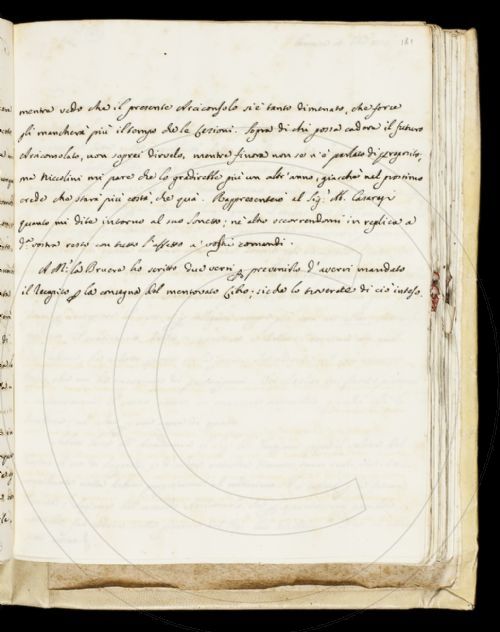 181
mentre vedo che il presente Arciconsolo si è tanto dimenato, che forse
gli mancherà più il tempo che le Lezioni. Sopra di chi possa cadere il futuro
Arciconsolato, non saprei dirvelo, mentre finora non se n'è parlato di proposito;
ma Niccolini mi pare che lo gradirebbe più un altr'anno, giacchè nel prossimo
credo che starà più costà, che quà. Rappresenterò al Sig.e M. Casaregi
quanto mi dite intorno al suo Sonetto; nè altro occorrendomi in replica a
d.a vostra resto con tutto l'affetto a' vostri comandi.
A M.r la Bruere ho scritto due versi per prevenirlo d'avervi mandato
il Recapito per la consegna del mentovato Libro; sicchè lo troverete di ciò inteso.